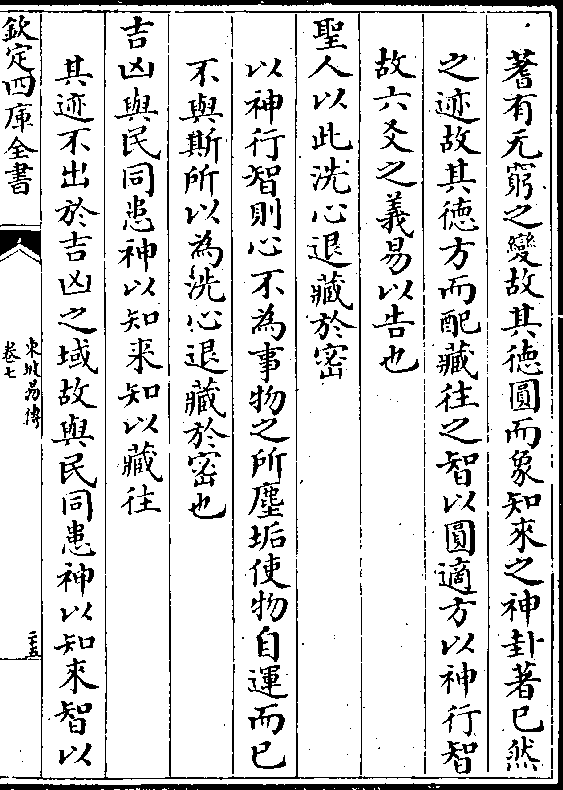 蓍有无窮之變故其徳圓而象知來之神卦著已然
之迹故其徳方而配藏往之智以圓適方以神行智
故六爻之義易以告也
聖人以此洗心退藏於密
以神行智則心不為事物之所塵垢使物自運而已
不與斯所以為洗心退藏於密也
吉凶與民同患神以知来知以藏往
其迹不出於吉凶之域故與民同患神以知來智以
欽定四庫全書
東坡易傳
卷七
二十五